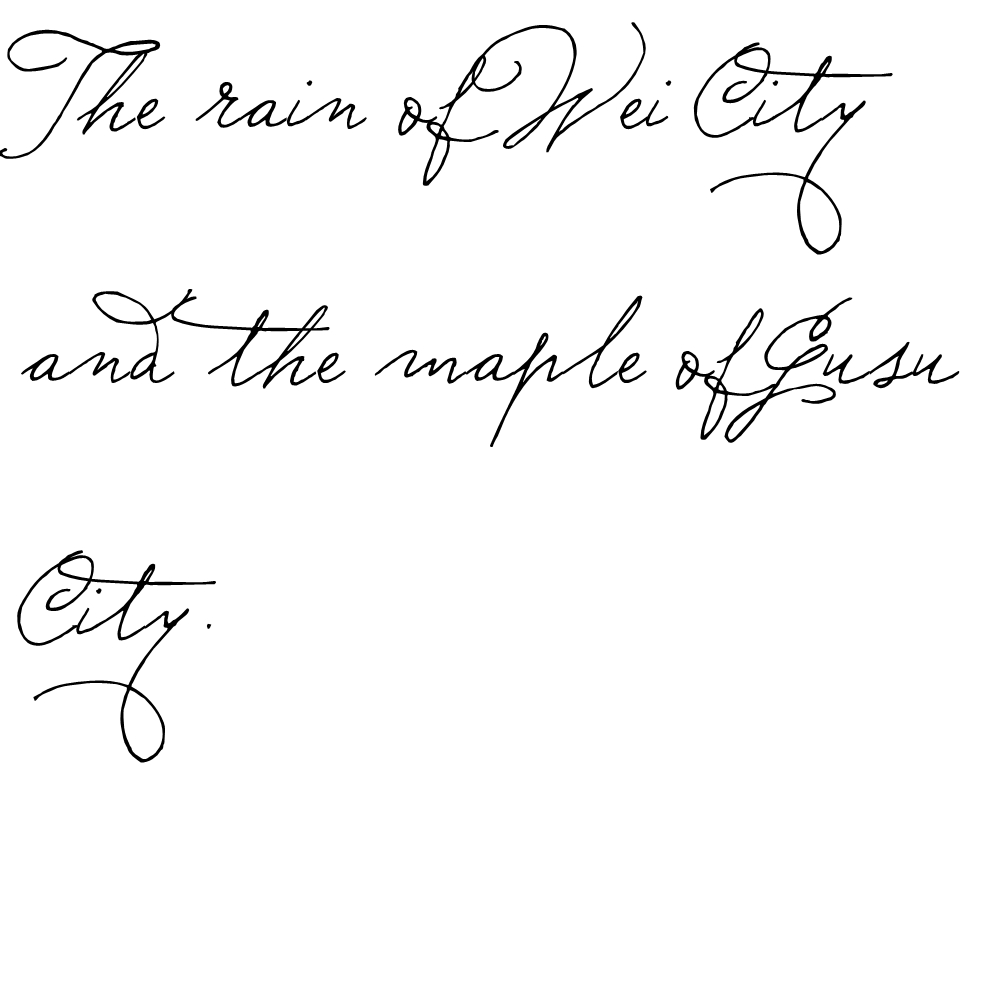 The rain of Wei City
and the maple of Gusu
City.